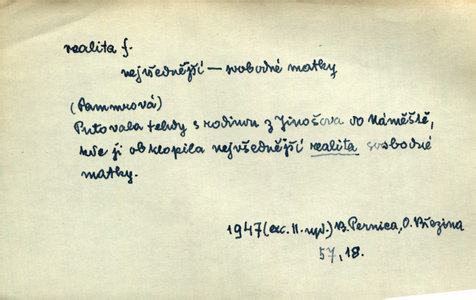 realita f.
nejvšednější — svobodné matky
(Pammrová)
Putovala tehdy s rodinou z Jinošova do Náměště,
kde ji obklopila nejvšednější realita svobodné
matky.
1947 (exc. II. vyd.) B. Pernica, O. Březina
57, 18.